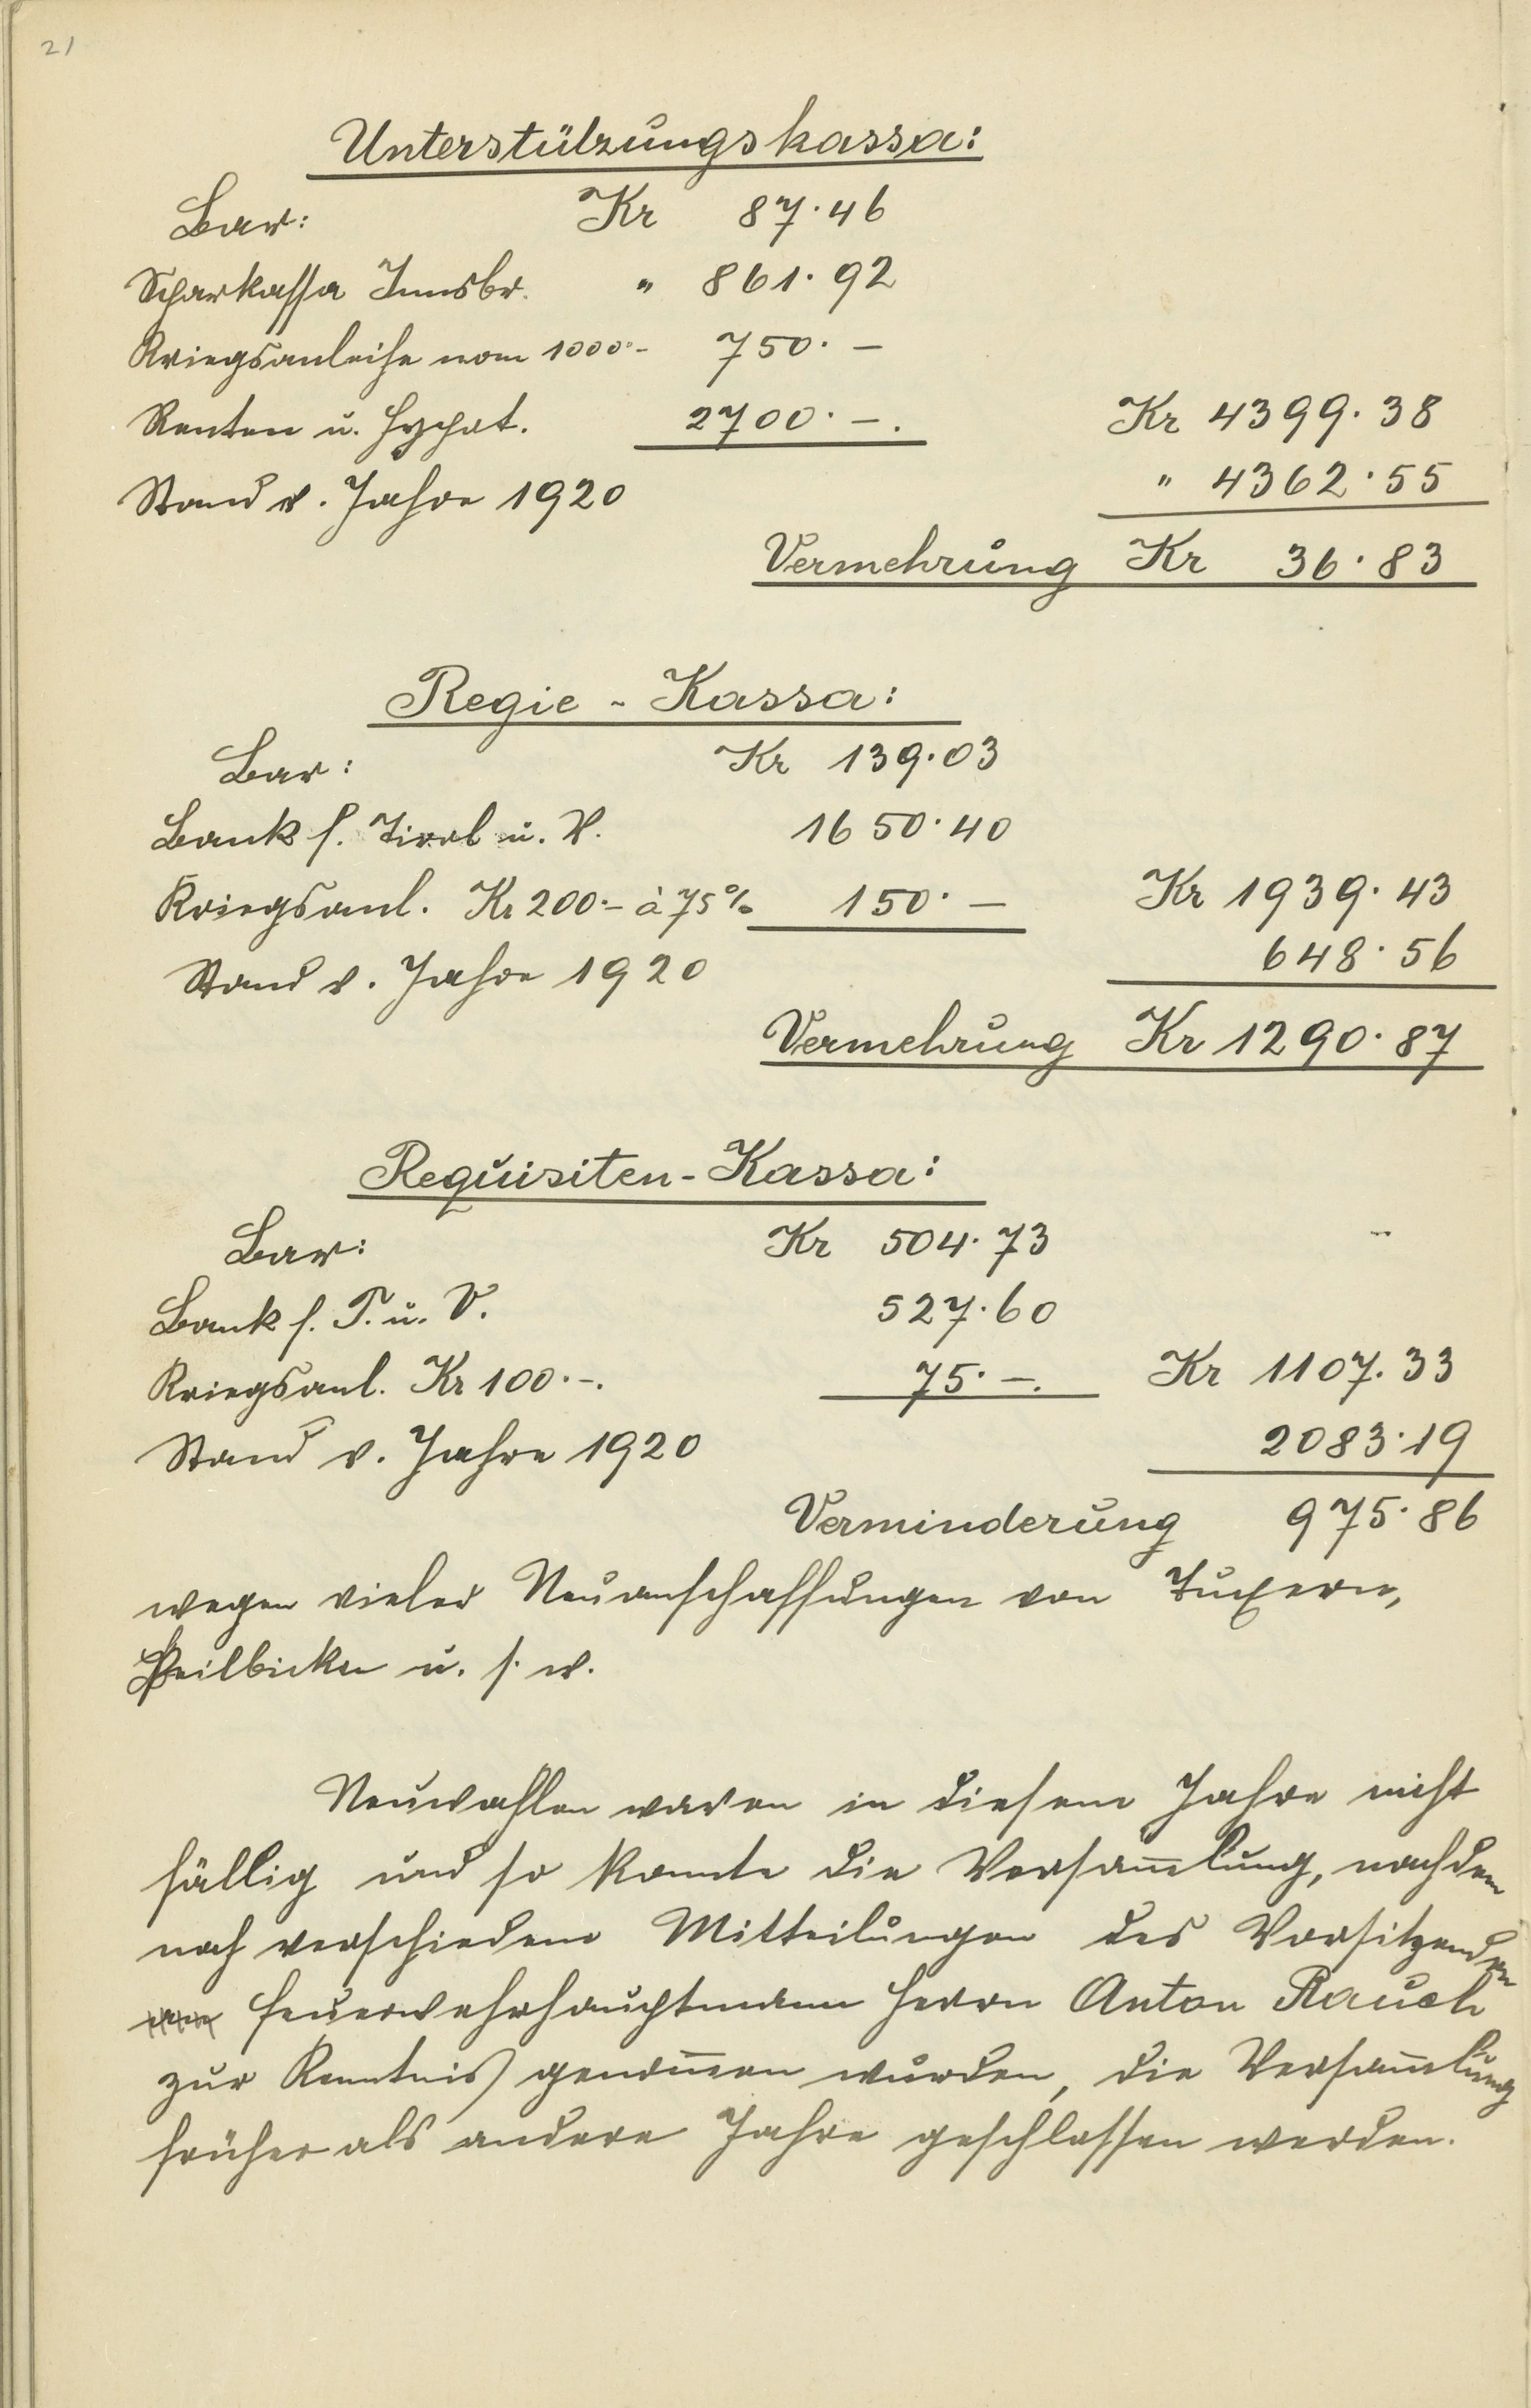 21
Unterstützungskassa:
Bar: Kr 87.46
Sparkassa Innsbr. " 861.92
Kriegsanleihe nom 1000.- 750.-
Renten u. Hypot. 2700.-. Kr 4399.38
Stand v. Jahre 1920 " 4362.55
Vermehrung Kr 36.83
Regie-Kassa:
Bar: Kr 139.03
Bank f. Tirol u. V. 1650.40
Kriegsanl. Kr 200.- à 75% 150.- Kr 1939.43
Stand v. Jahre 1920 648.56
Vermehrung Kr 1290.87
Requisiten-Kassa:
Bar: Kr 504.73
Bank f. T. u. V. 527.60
Kriegsanl. Kr 100.-. 75.-. Kr 1107.33
Stand v. Jahre 1920 2083.19
Verminderung 975.86
wegen vieler Neuanschaffungen von
u. s. w.
Neuwahlen waren in diesem Jahre nicht
fällig und so konnte die Versam̄lung, nachdem
noch verschiedene Mitteilungen des Vorsitzenden
Feuerwehrhauptmann Herrn Anton Rauch
zur Kenntnis genom̄en wurden, die Versam̄lung
früher als andere Jahre geschlossen werden.